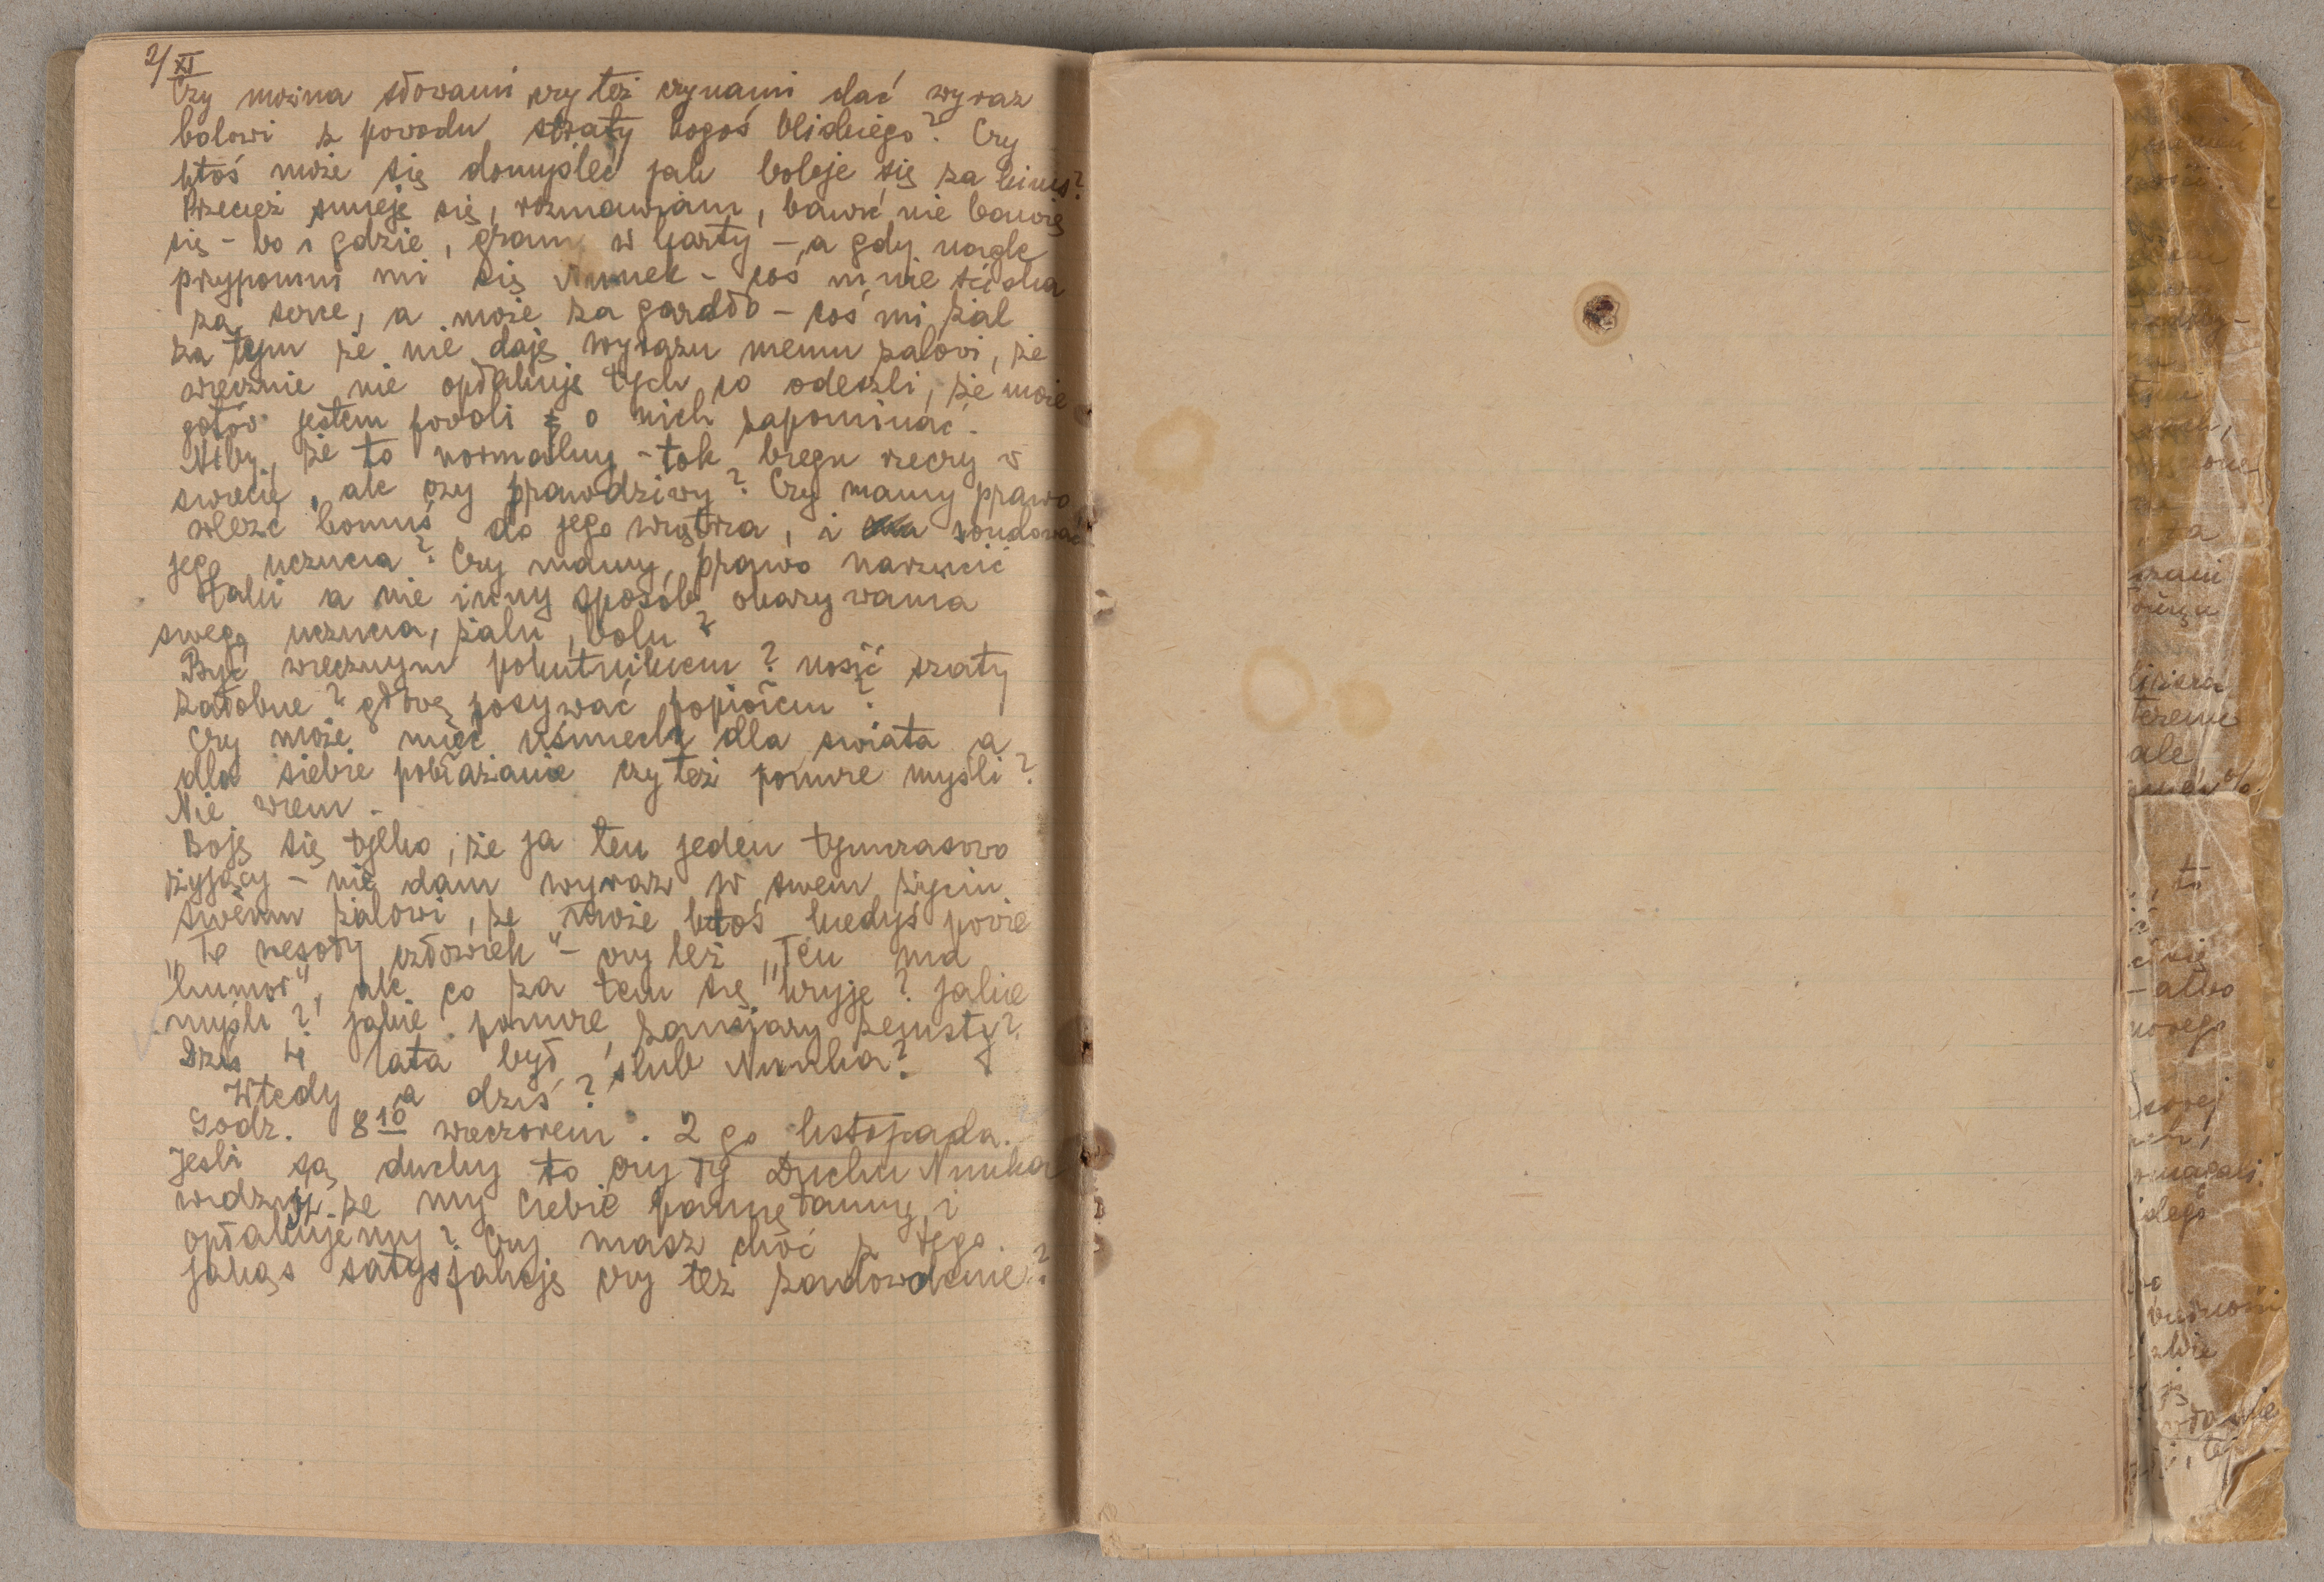 2/XI
Czy można słowami czy też czynami dać wyraz
bolowi z povodu straty kogoś bliskiego? Czy
ktoś może się domyśleć jak boleje się za kimś?
Przecież smieję się, rozmawiam, bawić nie bawię
się - bo i gdzie, gram w karty - a gdy nagle
przypomni mi się Numek - coś mnie ściska
za serce, a może za gardło - coś mi żal
za tym że nie daję wyrazu memu żalovi, że
wiecznie nie opłakuję tych co odeszli, że może
gotóv jestem povoli o nich zapominać.
Niby, że to normalny - tok biegu rzeczy v
swiecie, ale czy prawdzivy? Czy mamy prawo
wleźć komuś do jego wnętrza, i sondować
jego uczucia? Czy mamy prawo narzucić
taki a nie inny sposób okazyvania
swego uczucia, żalu, bolu?
Być wiecznym pokutnikiem? nosić szaty
żałobne? głovę posyvać popiołem?
Czy może mieć uśmiech dla swiata a
dla siebie pobłażanie czy też ponure myśli?
Nie wiem -
Boję się tylko, że ja ten jeden tymczasowo
żyjący - nie dam wyraz w swem życiu
swemu żalowi, że może ktoś kiedyś povie
"To wesoły człowiek" - czy też "Ten ma
humor", ale co za tem się kryje? jakie
myśli? jakie ponure, zamiary zemsty?
Dziś 4 lata był ślub Numka?
Wtedy a dziś?
Godz. 8 10 wieczorem. 2 go listopada.
Jesli są duchy to czy Ty Duchu Numka
widzisz że my Ciebie pamiętamy i
opłakujemy? Czy masz choć z tego
jakąs satysfakcję czy też zadowolenie?
ale
to
się
- albo